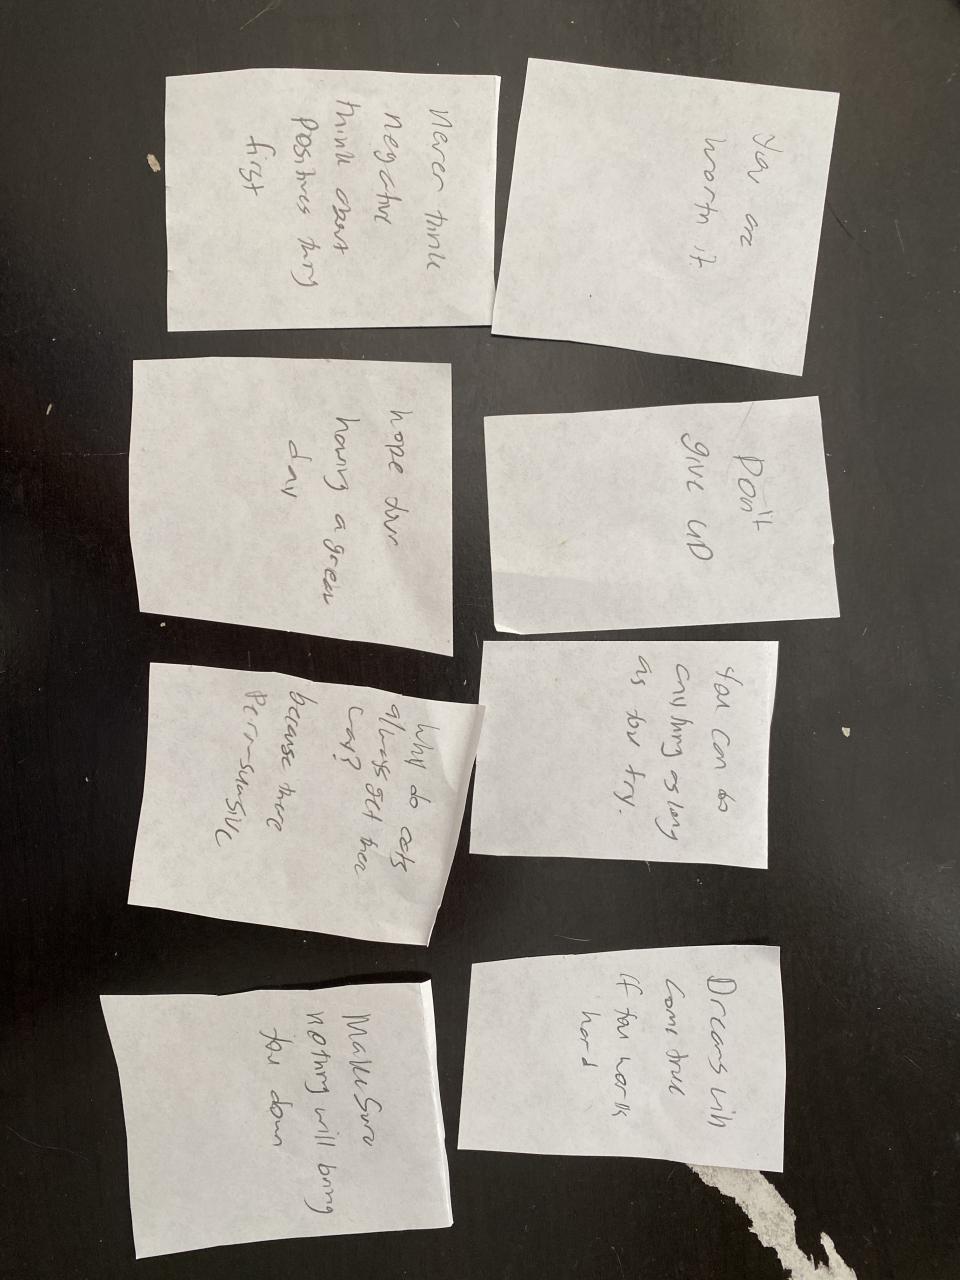 You are
worth it.
Don't
give up
You can do
any thing as long
as you try.
Dreams will
come true
if you work
hard
Never think
negative
think about
positives thing
first
hope your
having a great
day
Why do cats
always get there
way?
because there
Purr-suasive
Make Sure
nothing will bring
you down